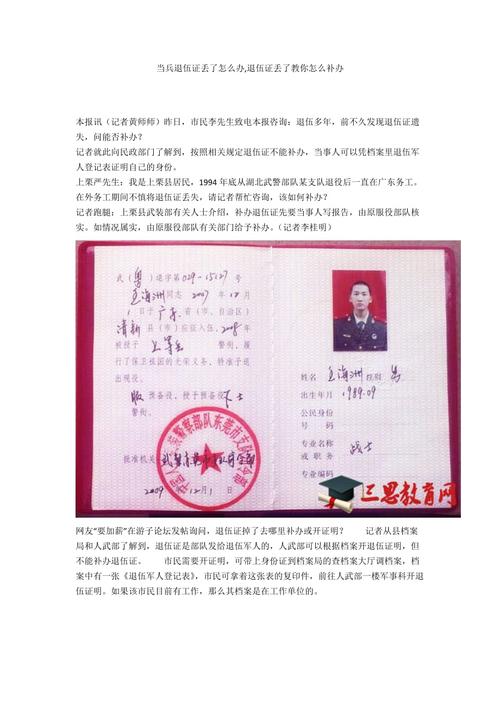 当兵退伍证丢了怎么办,退伍证丢了教你怎么补办
本报讯（记者黄师师）昨日，市民李先生致电本报咨询：退伍多年，前不久发现退伍证遗
失，问能否补办？
记者就此向民政部门了解到，按照相关规定退伍证不能补办，当事人可以凭档案里退伍军
人登记表证明自己的身份。
上栗严先生：我是上栗县居民，1994 年底从湖北武警部队某支队退役后一直在广东务工。
在外务工期间不慎将退伍证丢失，请记者帮忙咨询，该如何补办？
记者跑腿：上栗县武装部有关人士介绍，补办退伍证先要当事人写报告，由原服役部队核
实。如情况属实，由原服役部队有关部门给予补办。（记者李桂明）
武（粤）退字第029-15127号
王海洲同志 2007 年 12 月
1 日于广东省（市、自治区）
清新县（市）应征入伍，2008年
被授予上等兵警衔，履
行了保卫祖国的光荣义务，特准予退
出现役。
服预备役，授予预备役下士
警衔。
批准机关
2009 年 12 月 1 日
姓名 王海洲 性别 男
出生年月 1989.09
公民身份
号码
专业名称
或职务 战士
专业编码
三思教育网
网友“要加薪”在游子论坛发帖询问，退伍证掉了去哪里补办或开证明？ 记者从县档案
局和人武部了解到，退伍证是部队发给退伍军人的，人武部可以根据档案开退伍证明，但
不能补办退伍证。 市民需要开证明，可带上身份证到档案局的查档案大厅调档案，档
案中有一张《退伍军人登记表》，市民可拿着这张表的复印件，前往人武部一楼军事科开退
伍证明。如果该市民目前有工作，那么其档案是在工作单位的。